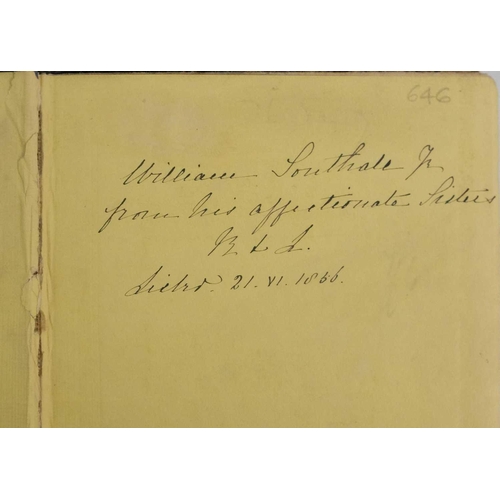 646
William Southall Jr
from his affectionate Sisters
21. VI. 1866.